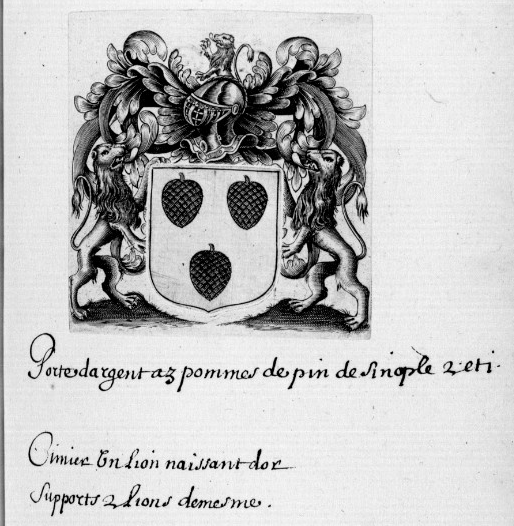 Porte dargent a 3 pommes de pin de sinople 2 et i.
Cimier Un Lion naissant dor
Supports 2 Lions demesme.